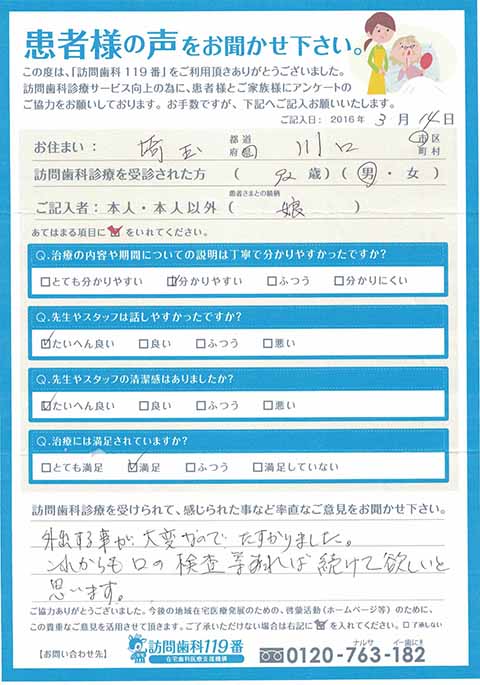 患者様の声をお聞かせ下さい。
この度は、「訪問歯科119番」をご利用頂きありがとうございました。
訪問歯科診療サービス向上の為に、患者様とご家族様にアンケートの
ご協力をお願いしております。お手数ですが、下記へご記入お願いいたします。
ご記入日：2016年 3月14日
お住まい：埼玉 都道府県 川口 市区町村
訪問歯科診療を受診された方（ 92歳）（男・女）
患者さまとの続柄
ご記入者：本人・本人以外（ 娘 ）
あてはまる項目に☑をいれてください。
Q.治療の内容や期間についての説明は丁寧で分かりやすかったですか？
□とても分かりやすい ☑分かりやすい □ふつう □分かりにくい
Q.先生やスタッフは話しやすかったですか？
☑たいへん良い □良い □ふつう □悪い
Q.先生やスタッフの清潔感はありましたか？
☑たいへん良い □良い □ふつう □悪い
Q.治療には満足されていますか？
□とても満足 ☑満足 □ふつう □満足していない
訪問歯科診療を受けられて、感じられた事など率直なご意見をお聞かせ下さい。
外出する事が大変なのでたすかりました。
これからも口の検査等あれば続けて欲しいと
思います。
ご協力ありがとうございました。今後の地域在宅医療発展のための、啓蒙活動（ホームページ等）のために、
この貴重なご意見を活用させて頂きます。ご了承いただけない場合は右記に☑を入れてください。□了承しない
【お問い合わせ先】 訪問歯科119番
在宅歯科医療支援機構
ナルサ イー歯に!
0120-763-182